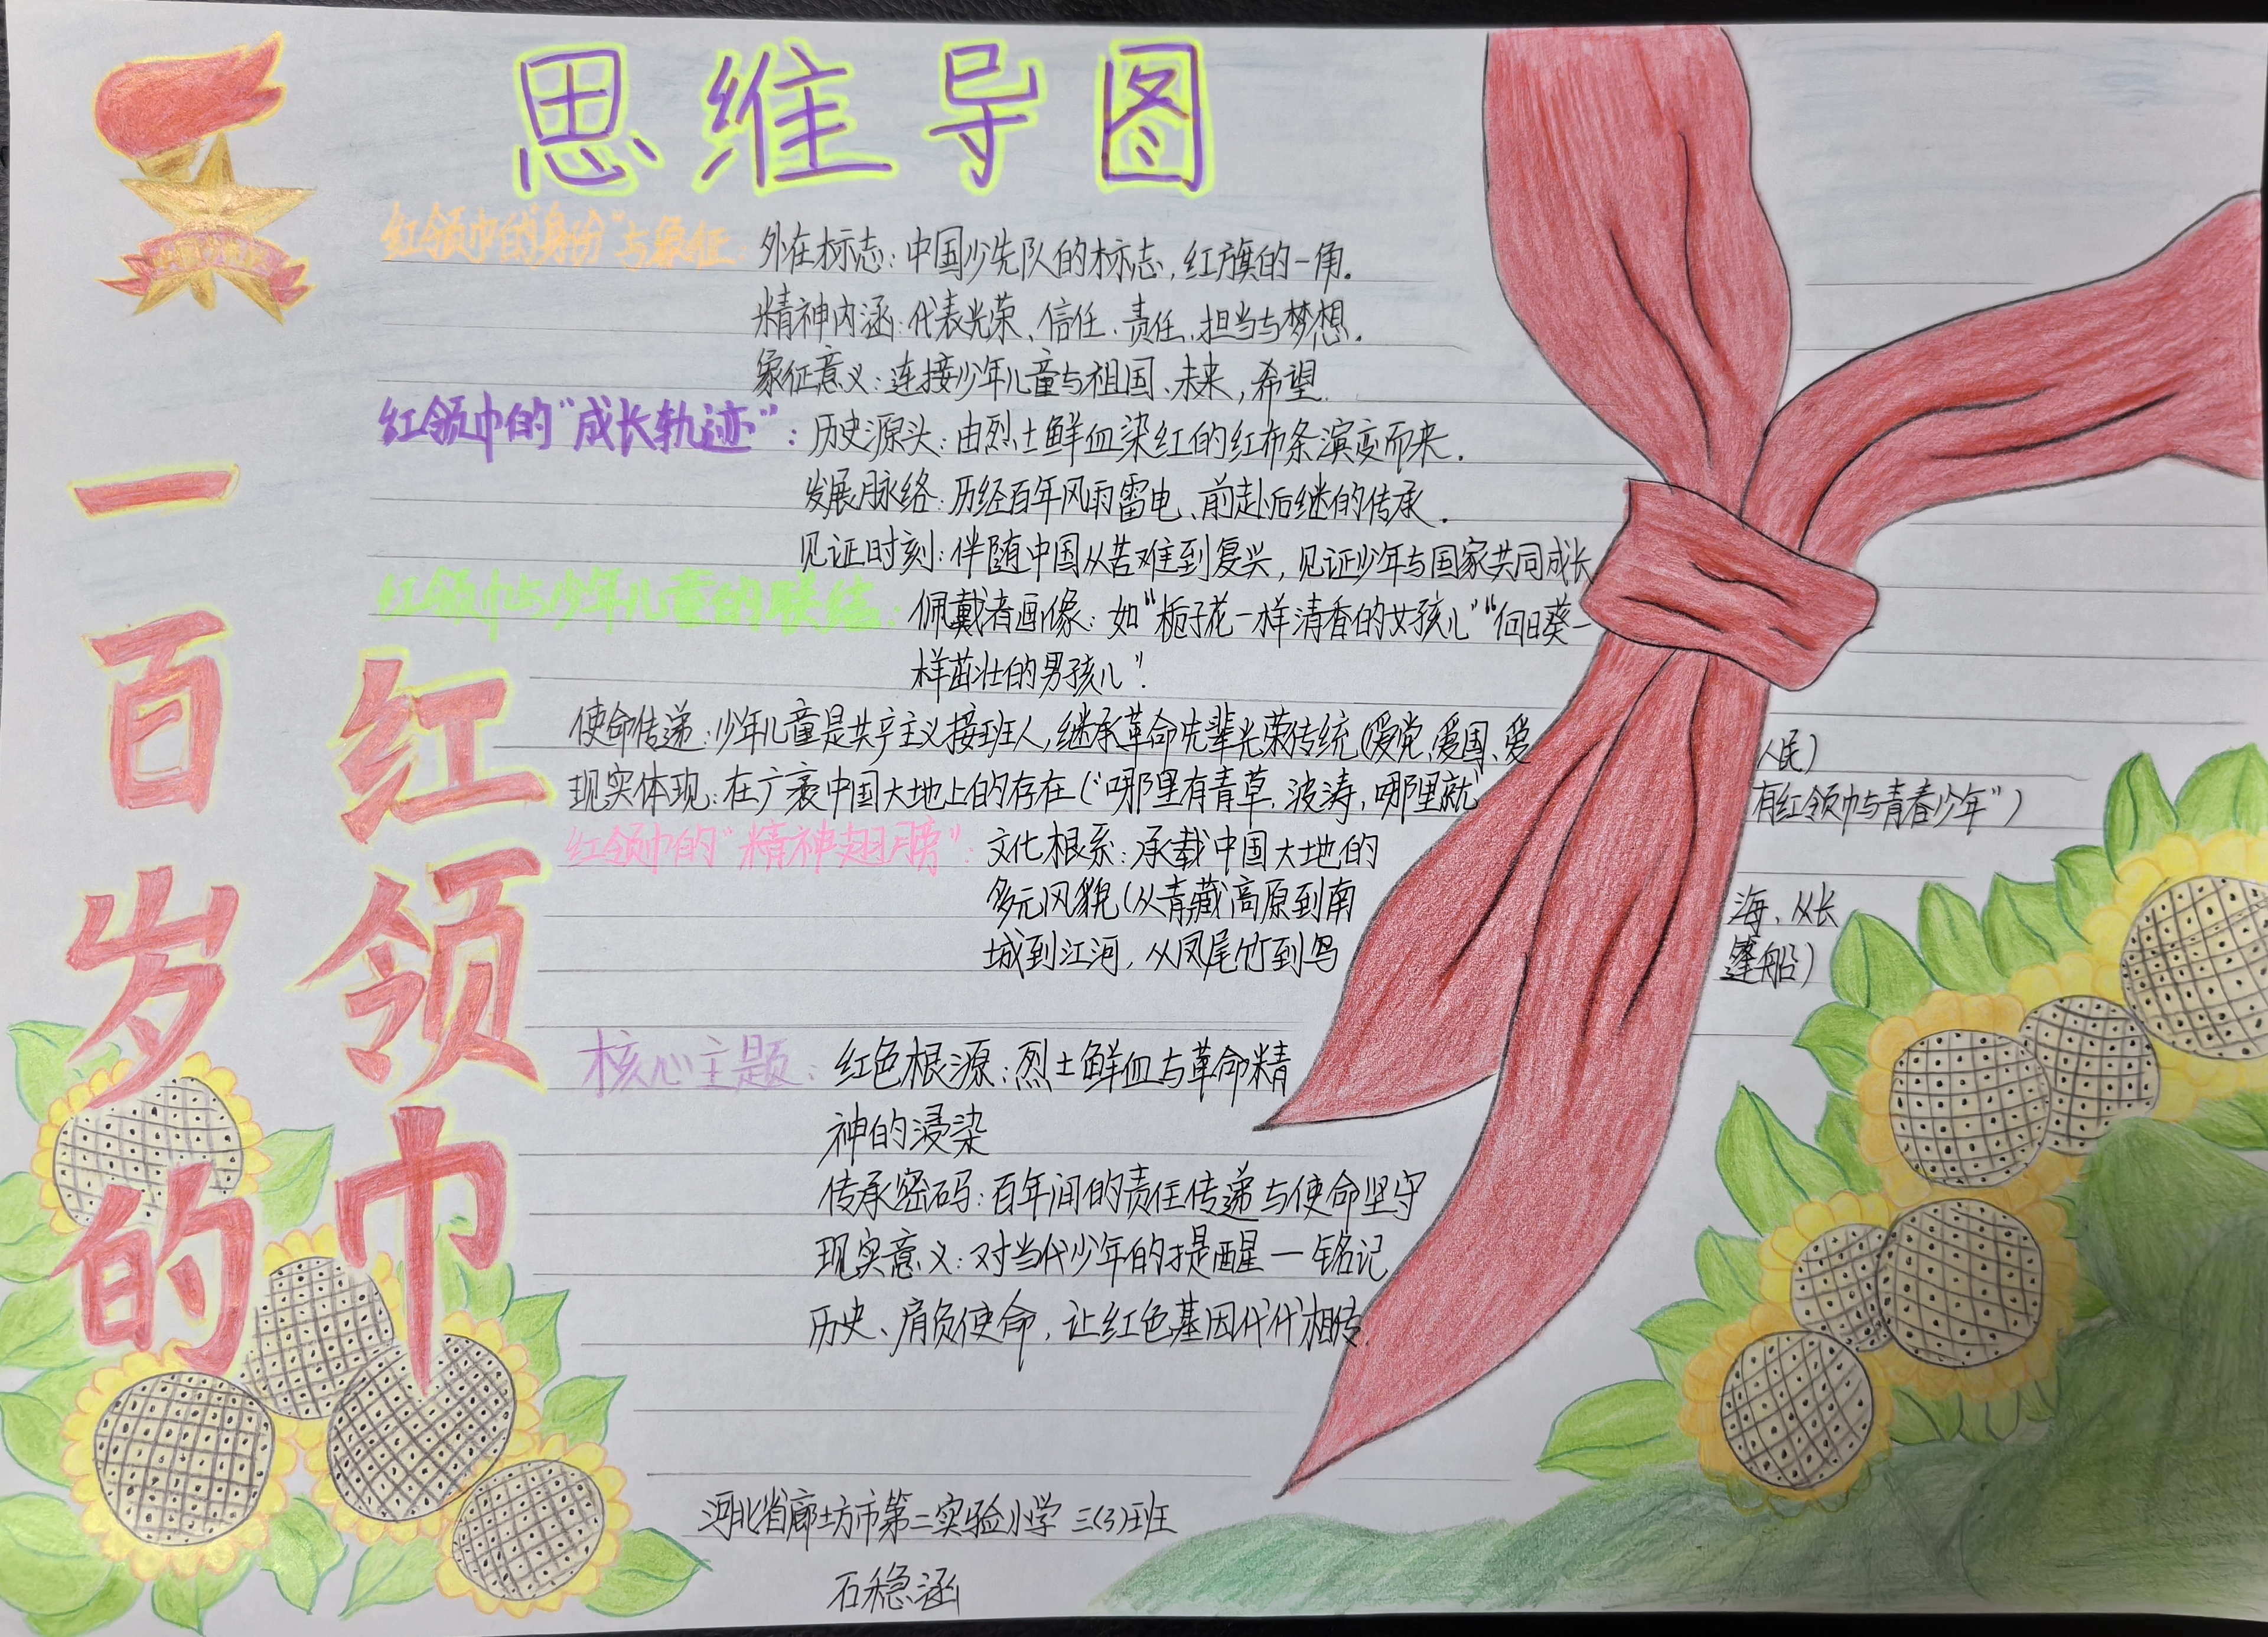 思维导图
一百岁的
红领巾
红领巾的"身份"与象征：外在标志：中国少先队的标志，红旗的一角.
精神内涵：代表光荣、信任、责任、担当与梦想.
象征意义：连接少年儿童与祖国、未来，希望.
红领巾的"成长轨迹"：历史源头：由烈士鲜血染红的红布条演变而来.
发展脉络：历经百年风雨雷电、前赴后继的传承.
见证时刻：伴随中国从苦难到复兴，见证少年与国家共同成长
红领巾与少年儿童的联结：佩戴者画像：如"栀子花一样清香的女孩儿""向日葵一
样茁壮的男孩儿".
使命传递：少年儿童是共产主义接班人，继承革命先辈光荣传统（爱党、爱国、爱人民）
现实体现：在广袤中国大地上的存在（"哪里有青草、波涛，哪里就有红领巾与青春少年"）
红领巾的"精神翅膀"：文化根系：承载中国大地的
多元风貌（从青藏高原到南海、从长
城到江河，从凤尾竹到乌篷船）
核心主题：红色根源：烈士鲜血与革命精
神的浸染
传承密码：百年间的责任传递与使命坚守
现实意义：对当代少年的提醒一铭记
历史、肩负使命，让红色基因代代相传.
河北省廊坊市第二实验小学 三(3)班
石稳涵